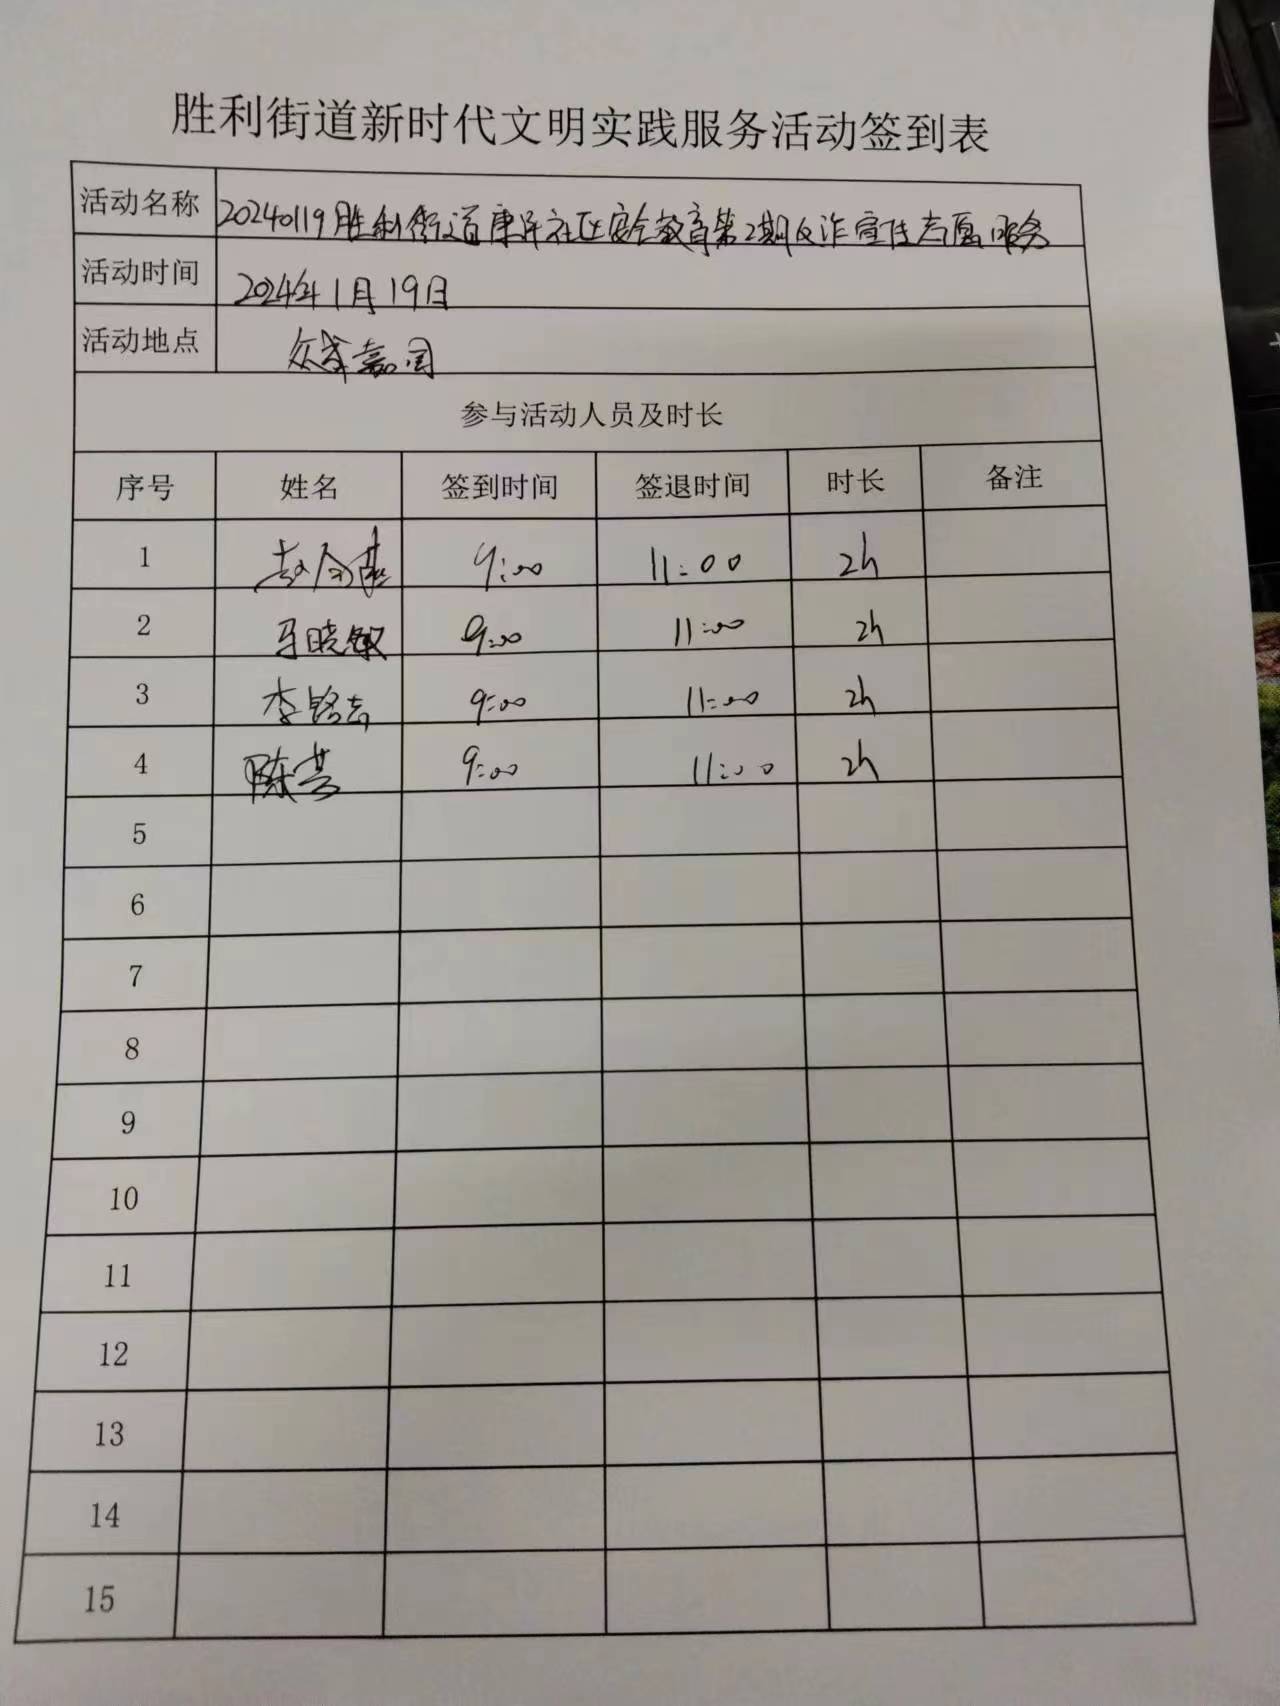 胜利街道新时代文明实践服务活动签到表
活动名称 20240119胜利街道康宁社区安全教育第2期反诈宣传志愿服务
活动时间 2024年1月19日
活动地点 众成嘉园
参与活动人员及时长
序号 姓名 签到时间 签退时间 时长 备注
1 9:00 11:00 2h
2 马晓敏 9:00 11:00 2h
3 李铭志 9:00 11:00 2h
4 陈芸 9:00 11:00 2h
5
6
7
8
9
10
11
12
13
14
15